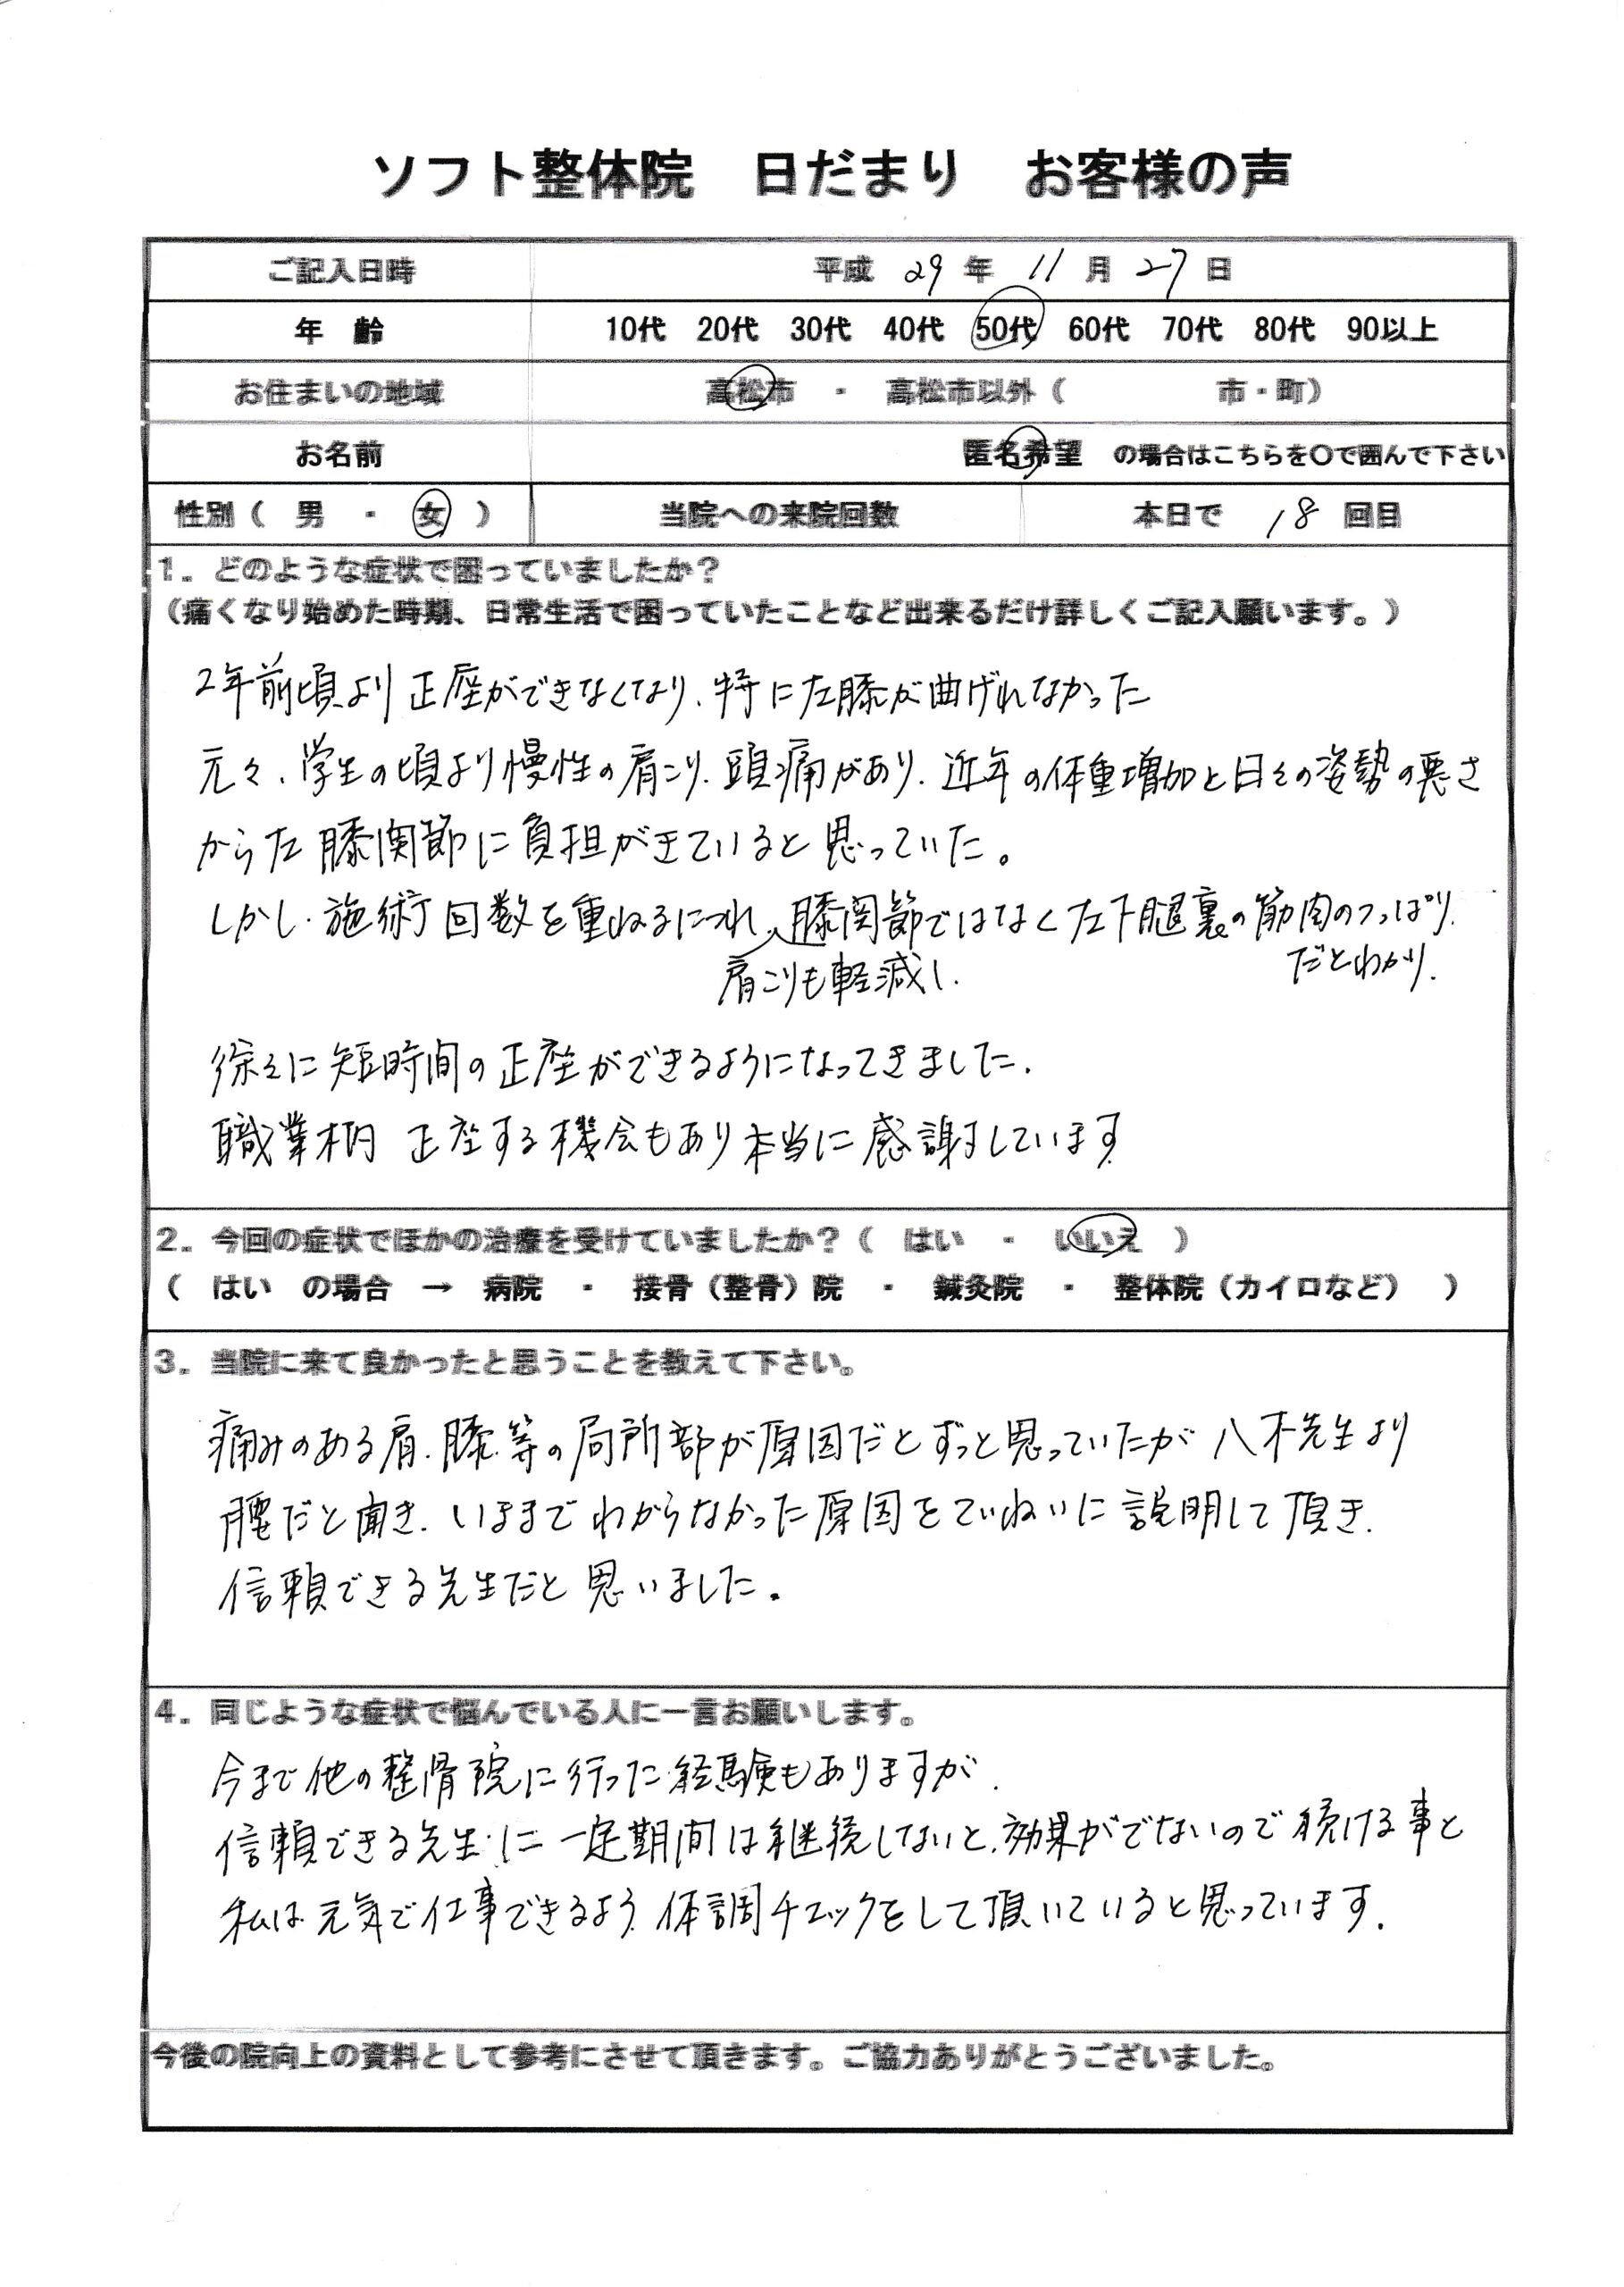 ソフト整体院　日だまり　お客様の声
ご記入日時　平成 29 年 11 月 27 日
年　齢　10代　20代　30代　40代　50代　60代　70代　80代　90以上
お住まいの地域　高松市　・　高松市以外（　　　　　市・町）
お名前　匿名希望　の場合はこちらを〇で囲んで下さい
性別（　男　・　女　）　当院への来院回数　本日で　18　回目
1．どのような症状で困っていましたか？
（痛くなり始めた時期、日常生活で困っていたことなど出来るだけ詳しくご記入願います。）
2年前頃より正座ができなくなり、特に左膝が曲げれなかった
元々、学生の頃より慢性の肩こり、頭痛があり、近年の体重増加と日々の姿勢の悪さ
から左膝関節に負担がきていると思っていた。
しかし、施術回数を重ねるにつれ、膝関節ではなく左下腿裏の筋肉のつっぱり
だとわかり、
肩こりも軽減し、
徐々に短時間の正座ができるようになってきました。
職業柄 正座する機会もあり本当に感謝しています
2．今回の症状でほかの治療を受けていましたか？（　はい　・　いいえ　）
（　はい　の場合　→　病院　・　接骨（整骨）院　・　鍼灸院　・　整体院（カイロなど）　）
3．当院に来て良かったと思うことを教えて下さい。
痛みのある肩、膝、等の局所部が原因だとずっと思っていたが 八木先生より
腰だと聞き、いままでわからなかった原因をていねいに説明して頂き、
信頼できる先生だと思いました。
4．同じような症状で悩んでいる人に一言お願いします。
今まで他の整骨院に行った経験もありますが、
信頼できる先生に一定期間は継続しないと、効果がでないので続ける事と
私は元気で仕事できるよう 体調チェックをして頂いていると思っています。
今後の院向上の資料として参考にさせて頂きます。ご協力ありがとうございました。